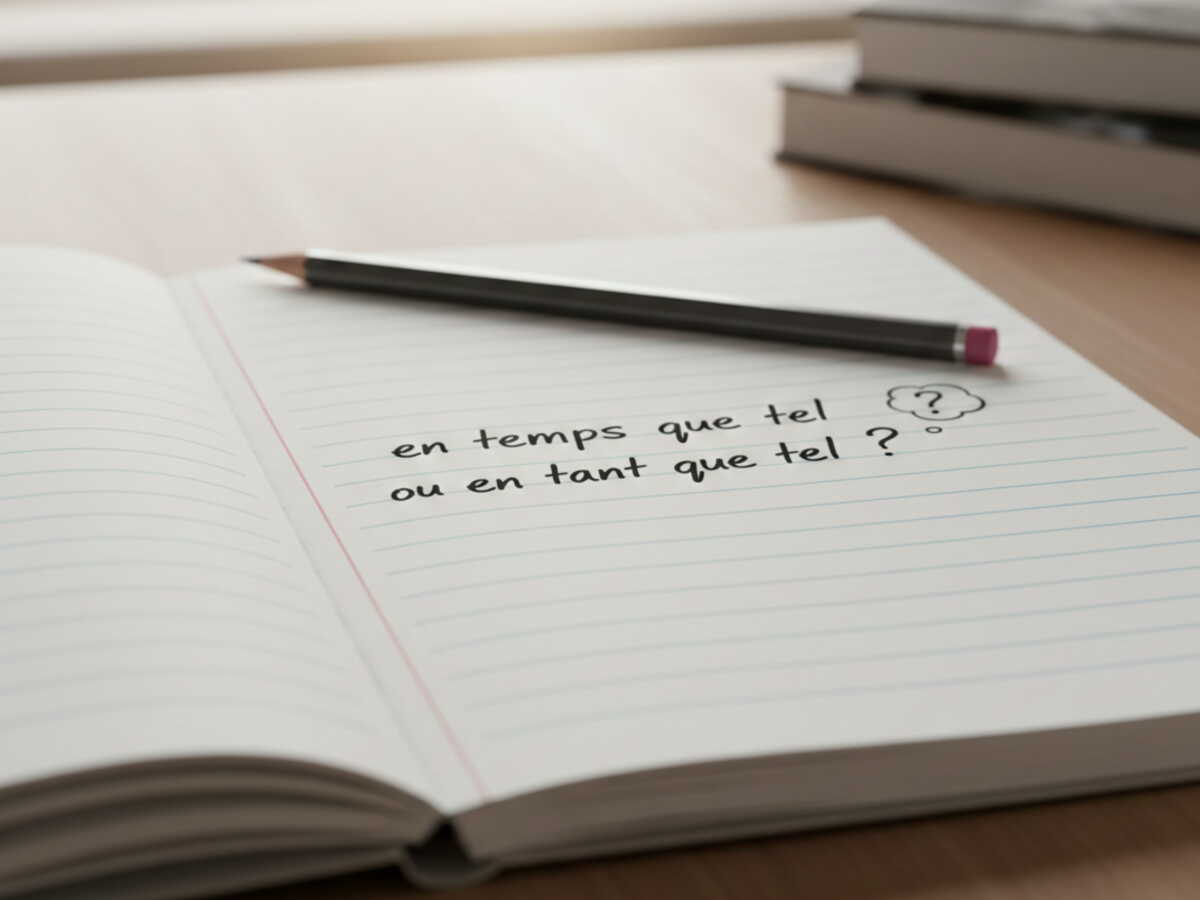 en temps que tel
ou en tant que tel ?
?